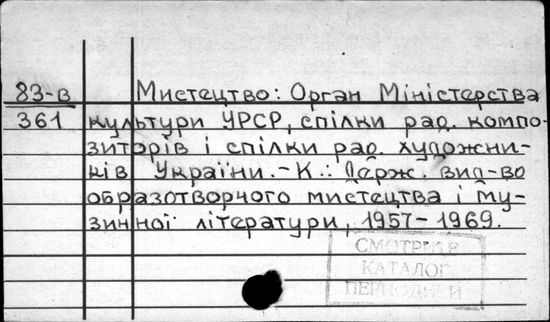 83-в Мистецтво: Орган Міністерства
361 культури УРСР, спілки рад. компо-
зиторів і спілки рад. художни-
ків України. - К.: Держ. вид-во
образотворчого мистецтва і му-
зичної літератури, 1957-1969.
СМОТРИТЕ
КАТАЛОГ